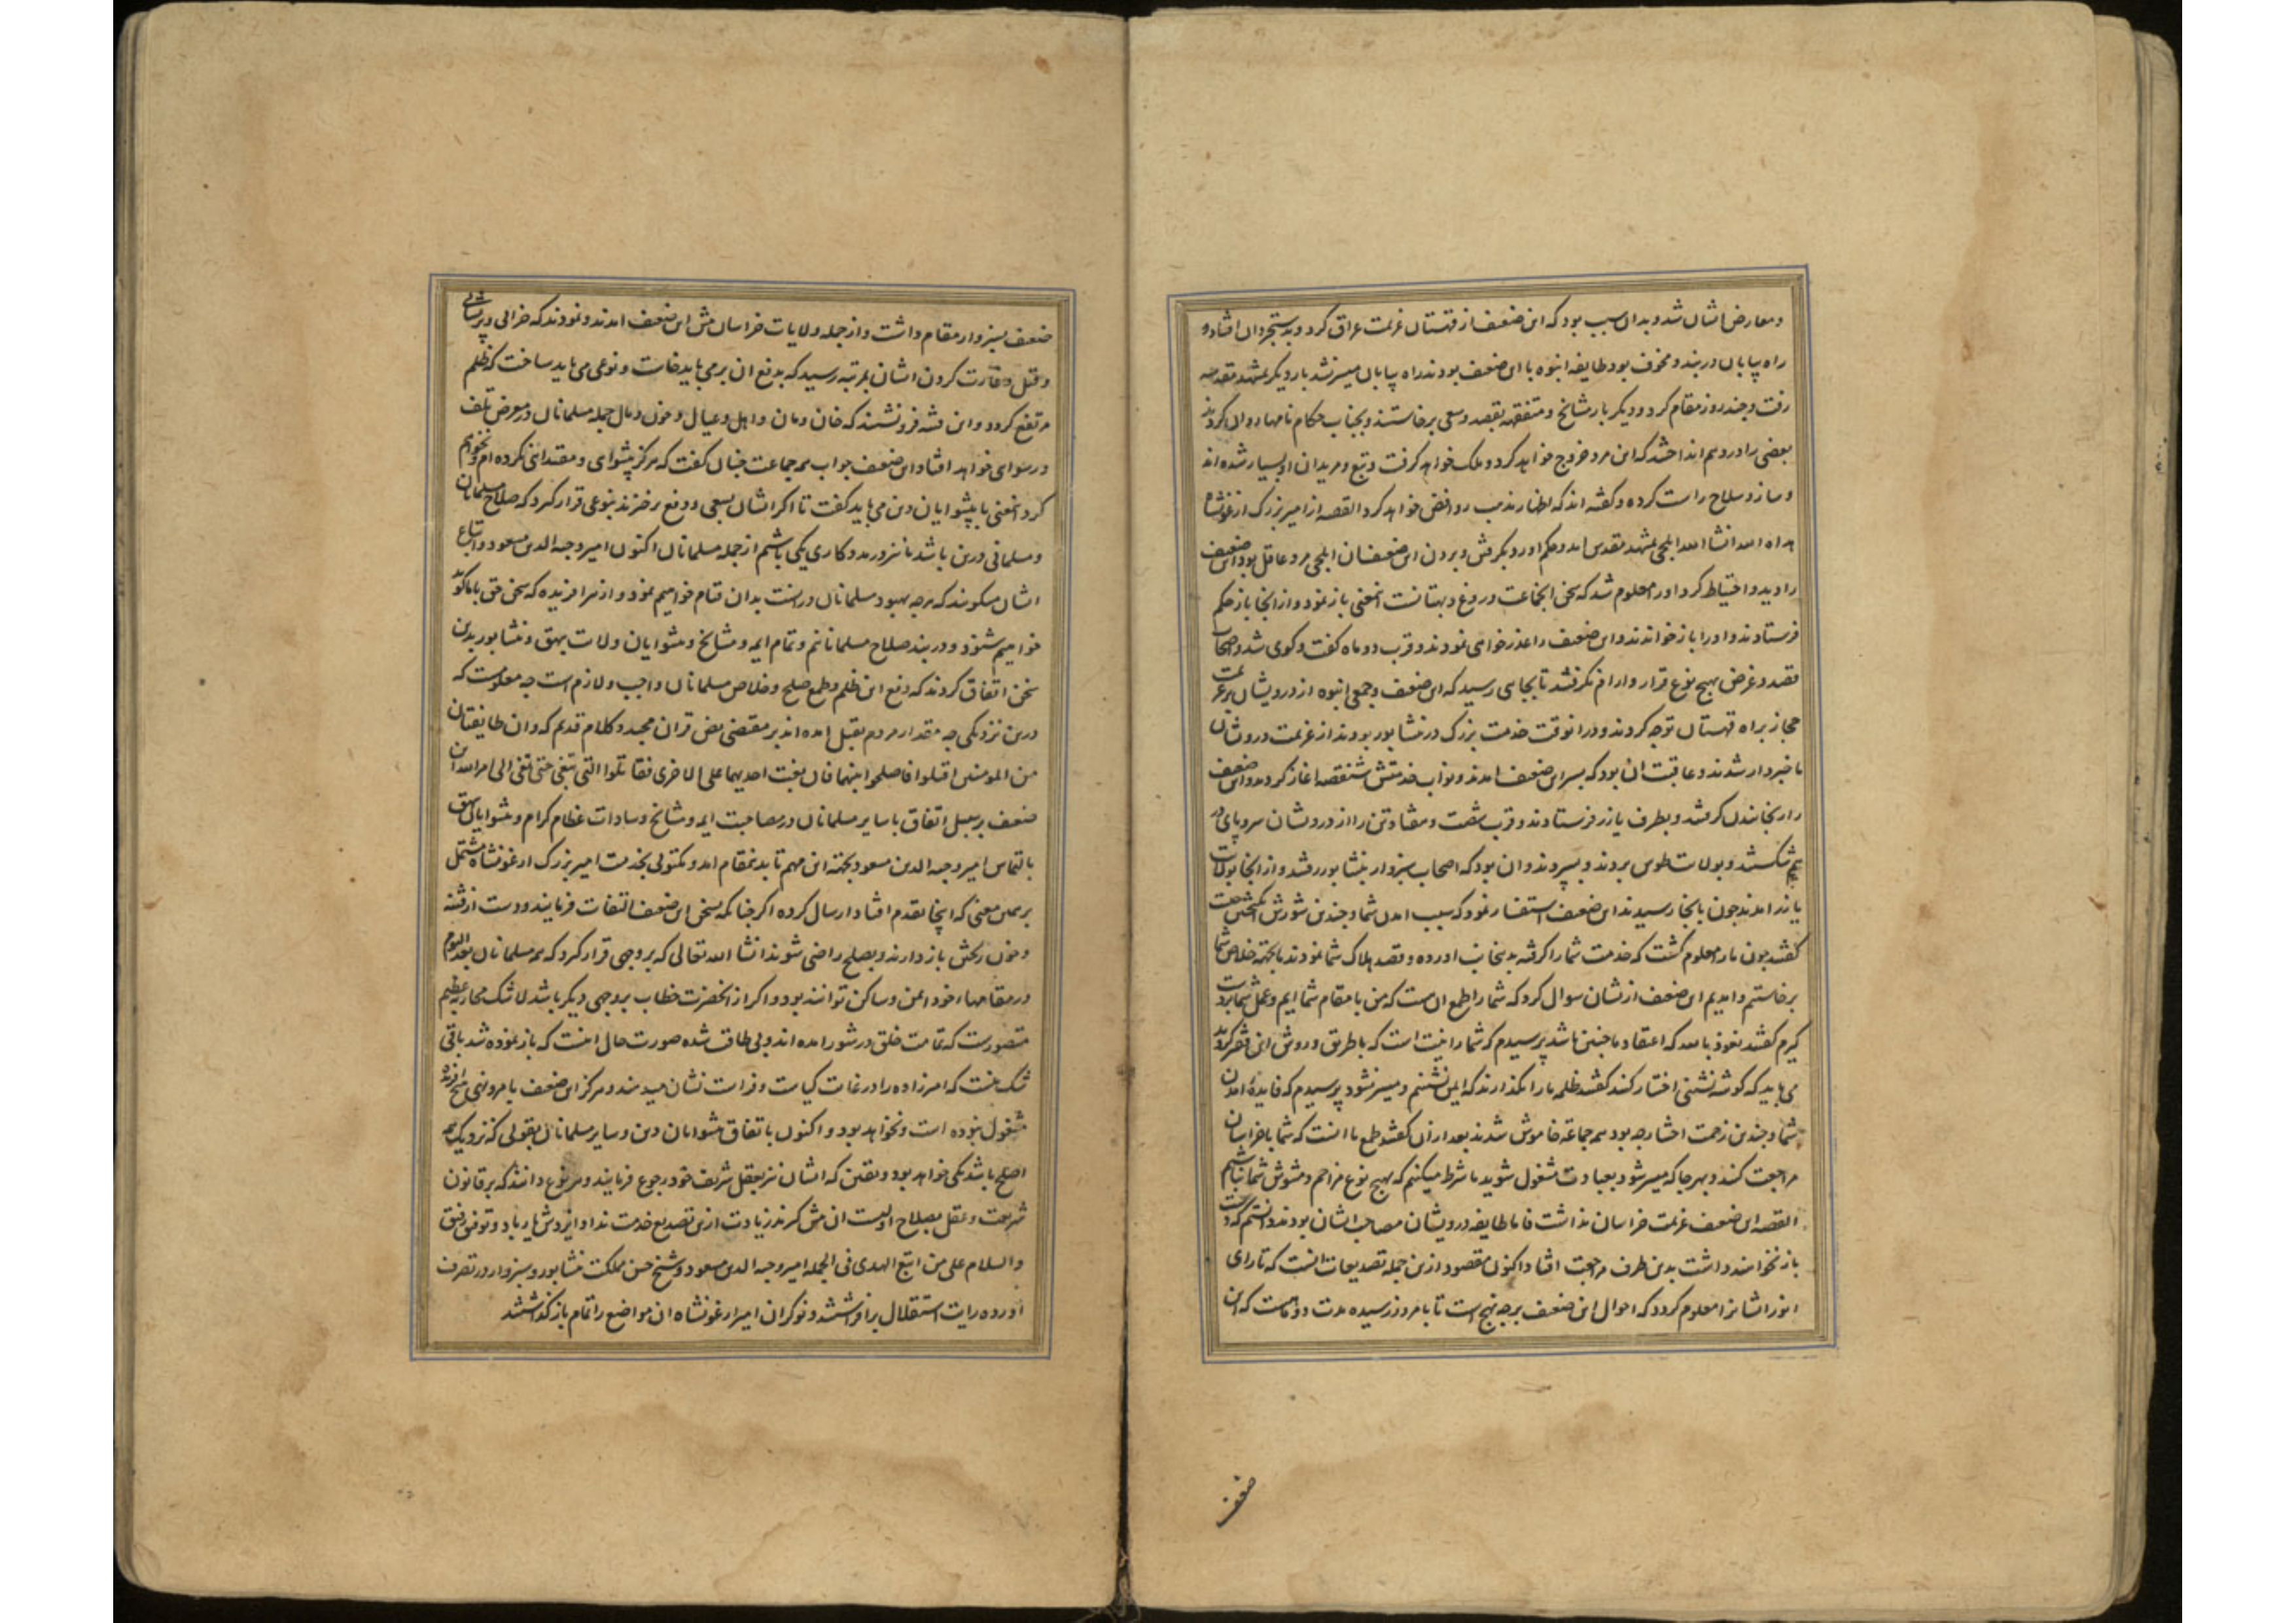 ومعارض ایشان شد و بدان سبب بود که این ضعیف از قهستان عزیمت عراق کرد و به دستجردان افتاد و
راه بیابان دربند و مخوف بود و طایفه انبوه با این ضعیف بودند راه بیابان میسر نشد بار دیگر بمشهد مقدسه
رفت و چند روز مقام کرد و دیگر بار مشایخ و متفقهه بقصد و سعی برخاستند و بجناب حکام نامها روان کردند
بعضی را در وهم انداختند که این مرد خروج خواهد کرد و ملک خواهد گرفت و تبع و مریدان او بسیار شده اند
و ساز و سلاح راست کرده و گفته اند که اظهار مذهب روافض خواهد کرد القصه از امیر بزرگ ارغونشاه
هداه الله انشاالله ایلچی بمشهد مقدس امد و حکم اورد بگرفتن و بردن این ضعیف ان ایلچی مرد عاقل بود این ضعیف
را دید و احتیاط کرد او را معلوم شد که سخن انجماعت دروغ و بهتانست انمعنی باز نمود و از انجا باز حکم
فرستادند و او را باز خواندند و این ضعیف را عذر خواهی نمودند و قرب دو ماه گفت و گوی شد و اصحاب
قصد و غرض بهیچ نوع قرار و ارام نگرفتند تا بجایی رسید که این ضعیف و جمعی انبوه از درویشان بر عزیمت
حجاز براه قهستان توجه کردند و در انوقت خدمت بزرگ در نشابور بودند از عزیمت درویشان
با خبردار شدند و عاقبت ان بود که بسر این ضعیف امدند و نواب خدمتش شنقصه اغاز کردند و این ضعیف
را برنجانیدن گرفتند و بطرف یازر فرستادند و قرب شصت و هفتاد تن را از درویشان سر و پای در
هم شکستند و بولایت طوس بردند و سپردند و ان بود که اصحاب سبزوار بنشابور رفتند و از انجا بولایت
یازر امدند چون بانجا رسیدند این ضعیف استفسار نمود که سبب امدن شما و چندین شورش انگیختن چیست
گفتند چون ما را معلوم گشت که خدمت شما را گرفته بدینجانب اورده و قصد هلاک شما نمودند ما بجهة خلاص شما
برخاستیم و امدیم این ضعیف از ایشان سوال کرد که شما را طمع ان است که من با مقام شما ایم و عمل شما بر دست
گیرم گفتند نعوذ بالله که اعتقاد ما چنین باشد پرسیدم که شما را نیت است که با طریق و روش این فقیر گردید
می باید که گوشه نشینی اختیار کنند گفتند ظلمه ما را نگذارند که ایمن نشینیم و میسر نشود پرسیدم که فایدۀ امدن
شما و چندین زحمت اختیار چه بود همه جماعة خاموش شدند بعد از ان گفتند طمع ما انست که شما با خراسان
مراجعت کنند و بهر جا که میسر شود بعبادت مشغول شوید ما شرط میکنیم که بهیچ نوع مزاحم و مشوش شما نباشیم
القصه این ضعیف عزیمت خراسان نداشت فاما طایفه درویشان مصاحب ایشان بودند دانستم که دست
باز نخواهند داشت بدین طرف مراجعت افتاد اکنون مقصود از این جمله تصدیعات انست که تا رای
انور انشانرا معلوم گردد که احوال این ضعیف بر چه نهج است تا بامروز رسیده مدت دو ماهست که این
ضعیف
ضعیف بسبزوار مقام داشت و از جمله ولایات خراسان پیش این ضعیف امدند و نمودند که خرابی و پریشانی
و قتل و غارت کردن ایشان بمرتبه رسید که بدفع ان بر می باید خاست و نوعی می باید ساخت که ظلم
مرتفع گردد و این فتنه فرو نشیند که خان و مان و اهل و عیال و خون و مال جمله مسلمانان در معرض تلف
و رسوای خواهد افتاد این ضعیف جواب همه جماعت چنان گفت که هرگز پیشوای و مقتدایی نکرده ام و نخواهم
کرد انمعنی با پیشوایان دین می باید گفت تا اگر ایشان بسعی و دفع برخیزند بنوعی قرار گیرد که صلاح مسلمانان
و مسلمانی در ان باشد ما نیز در مددکاری یکی باشیم از جمله مسلمانان اکنون امیر وجیه الدین مسعود و اتباع
ایشان میگویند که هر چه بهبود مسلمانان در انست بدان قیام خواهیم نمود و از هر افریده که سخن حق با ما گوید
خواهیم شنود و در بند صلاح مسلمانانیم و تمام ایمه و مشایخ و پیشوایان ولایت بیهق و نشابور بدین
سخن اتفاق کردند که دفع این ظلم و طمع صلح و خلاص مسلمانان واجب و لازم است چه معلومست که
درین نزدیکی چه مقدار مردم بقتل امده اند بر مقتضی نص قران مجید و کلام قدیم که وان طایفتان
من المومنین اقتتلوا فاصلحوا بینهما فان بغت احدیهما علی الاخری فقاتلوا التی تبغی حتی تفی الی امر الله این
ضعیف بر سبیل اتفاق با سایر مسلمانان در مصاحبت ایمه و مشایخ و سادات عظام کرام و پیشوایان بیهق
بالتماس امیر وجیه الدین مسعود بجهة این مهم تا بدینمقام امد و مکتوبی بخدمت امیر بزرگ ارغونشاه مشتمل
بر همین معنی که اینجا تقدم افتاد ارسال کرده اگر چنانکه بسخن این ضعیف التفات فرمایند و دست از فتنه
و خون ریختن باز دارند و بصلح راضی شوند انشا الله تعالی که بر وجهی قرار گیرد که همه مسلمانان بعد الیوم
در مقامهاء خود ایمن و ساکن توانند بود و اگر از انحضرت خطاب بر وجهی دیگر باشد لا شک محاربه عظیم
متصورست که تمامت خلق در شور امده اند و بی طاقت شده صورت حال اینست که باز نموده شد باقی
شک نیست که امیرزاده را در غایت کیاست و فراست نشان میدهند و هرگز این ضعیف بامر و نهی هیچ افریده
مشغول نبوده است و نخواهد بود و اکنون باتفاق پیشوایان دین و سایر مسلمانان بقولی که نزدیک همه
اصلح باشد یکی خواهد بود و یقین که ایشان نیز بعقل شریف خود رجوع فرمایند و هر نوع دانند که بر قانون
شریعت و عقل بصلاح اولیست ان پیش گیرند زیادت ازین تصدیع خدمت نداد ایزدش یار باد و توفیق رفیق
والسلام علی من اتبع الهدی فی الجمله امیر وجیه الدین مسعود و شیخ حسن مملکت نشابور و سبزوار در تصرف
اورده رایت استقلال برافراشتند و نوکران امیر ارغونشاه ان مواضع را تمام باز گذاشتند